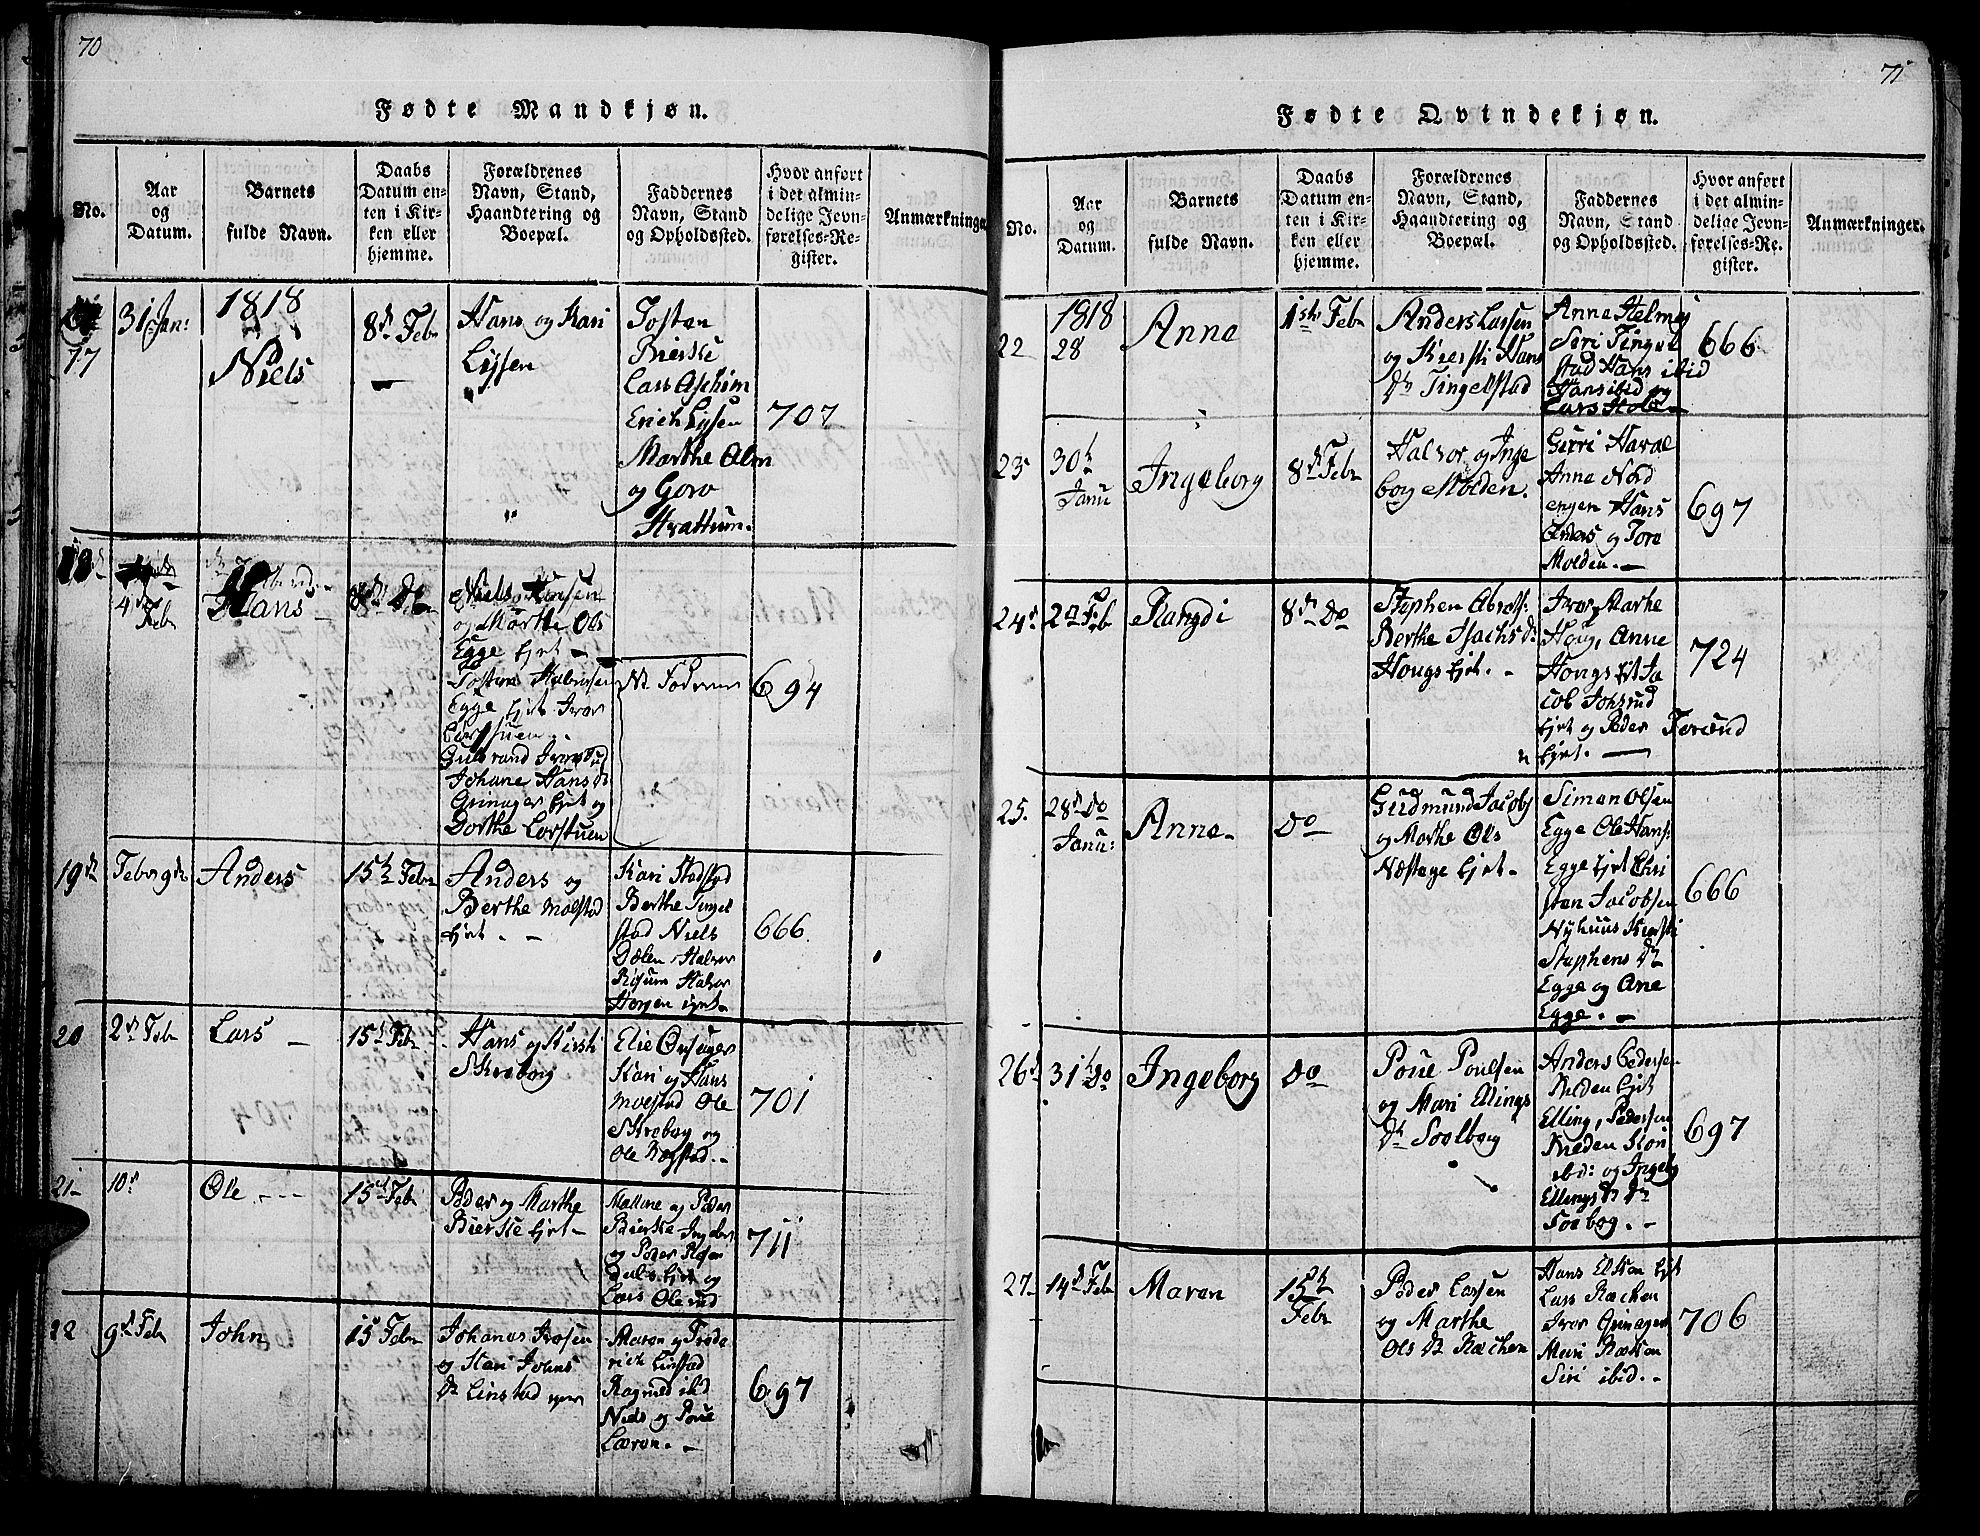 70
Fødte Mandkjøn.
No.
Aar
og
Datum.
Barnets
fulde Navn.
Daabs
Datum en-
ten i Kir-
ken eller
hjemme.
Forældrenes
Navn, Stand,
Haandtering og
Boepæl.
Faddernes
Navn, Stand
og Opholdssted.
Hvor anført
i det almin-
delige Jevn-
førelses-Re-
gister.
Anmærkninger
17
31 Jan:
1818
Niels
8de Febr
Hans og Kari
Lysen
Tosten
Bierke
Lars Asheim
Erich Lysen
Marthe Alm
og Goro
Strattum.
707
18
4de
Febr
Hans
8de Do
Niels
og Marthe Ols
Egge Ejet
Tosten Halvorsen
Egge Ejet Iver
Gulbrand
Johane Hans Dr
Grinager Ejet og
Dorthe
694
19de
Febr 9de
Anders
15de Febr
Anders og
Berthe Molstad
Ejet
Kari Stadstad
Berthe Tingel
stad Niels
Dælen Halvor
Risum Halvor
Horgen
666
20
2de Febr
Lars
15de Febr
Hans og Kirsti
Skreberg
Elie
Kari og Hans
Molstad Ole
Skreberg og
Ole
701
21
10de
Ole
15de Febr
Peder og Marthe
Bierke Ejet
og Peder
Bierke
og Peder
Ejet og
Lars
711
22
9de Febr
John
15 Febr
Johanes
og Kari Johns
Dr Linstad
Maren og Frede
rich Linstad
Ragnild ibid
Niels og Poue
697
71
Fødte Qvindekjøn.
No.
Aar
og
Datum.
Barnets
fulde Navn.
Daabs
Datum en-
ten i Kir-
ken eller
hjemme.
Forældrenes
Navn, Stand,
Haandtering og
Boepæl.
Faddernes
Navn, Stand
og Opholdssted.
Hvor anført
i det almin-
delige Jevn-
førelses-Re-
gister.
Anmærkninger.
22
1818
28
Anne
1ste Febr
Anders Larsen
og Kiersti Hans
Dr Tingelstad
Anne Helmey
Siri Tingel
stad Hans ibid
Hans ibid og
Lars
666
23
30te
Janu
Ingeborg
8de Febr
Halvor og Inge
borg Molden.
Guri
Anne Nord
engen Hans
Anders og Tore
Molden.
697
24
2den Feb
Rangdi
8de Do
Stephen
Berthe Isachs Dr
Hougs Ejet.
Iver Marthe
Houg, Anne
Hougs Ejet Ja
cob
Ejet og Peder
Ejet.
724
25.
28de Do
Janu:
Anne
Do
Gudmund Jacobs
og Marthe Ols
Ejet
Simen Olsen
Egge Ole Hans:
Egge Ejet Chri
sten Jacobsen
Nyhuus Kirsti
Stephens Dr
Egge og Ane
Egge.
666
26
31te Do
Ingeborg
Do
Poue Poulsen
og Mari Ellings
Dr Soelberg
Anders Pedersen
Ejet
Elling Pedersen
Kari
ibid: og Ingeb
Ellings Dr
697
27
14de Febr
Maren
15de
Febr
Peder Larsen
og Marthe
Ols Dr Rachen
Hans Ejet
Lars Rachen
Iver Grinager
Mari
Siri ibid.
706